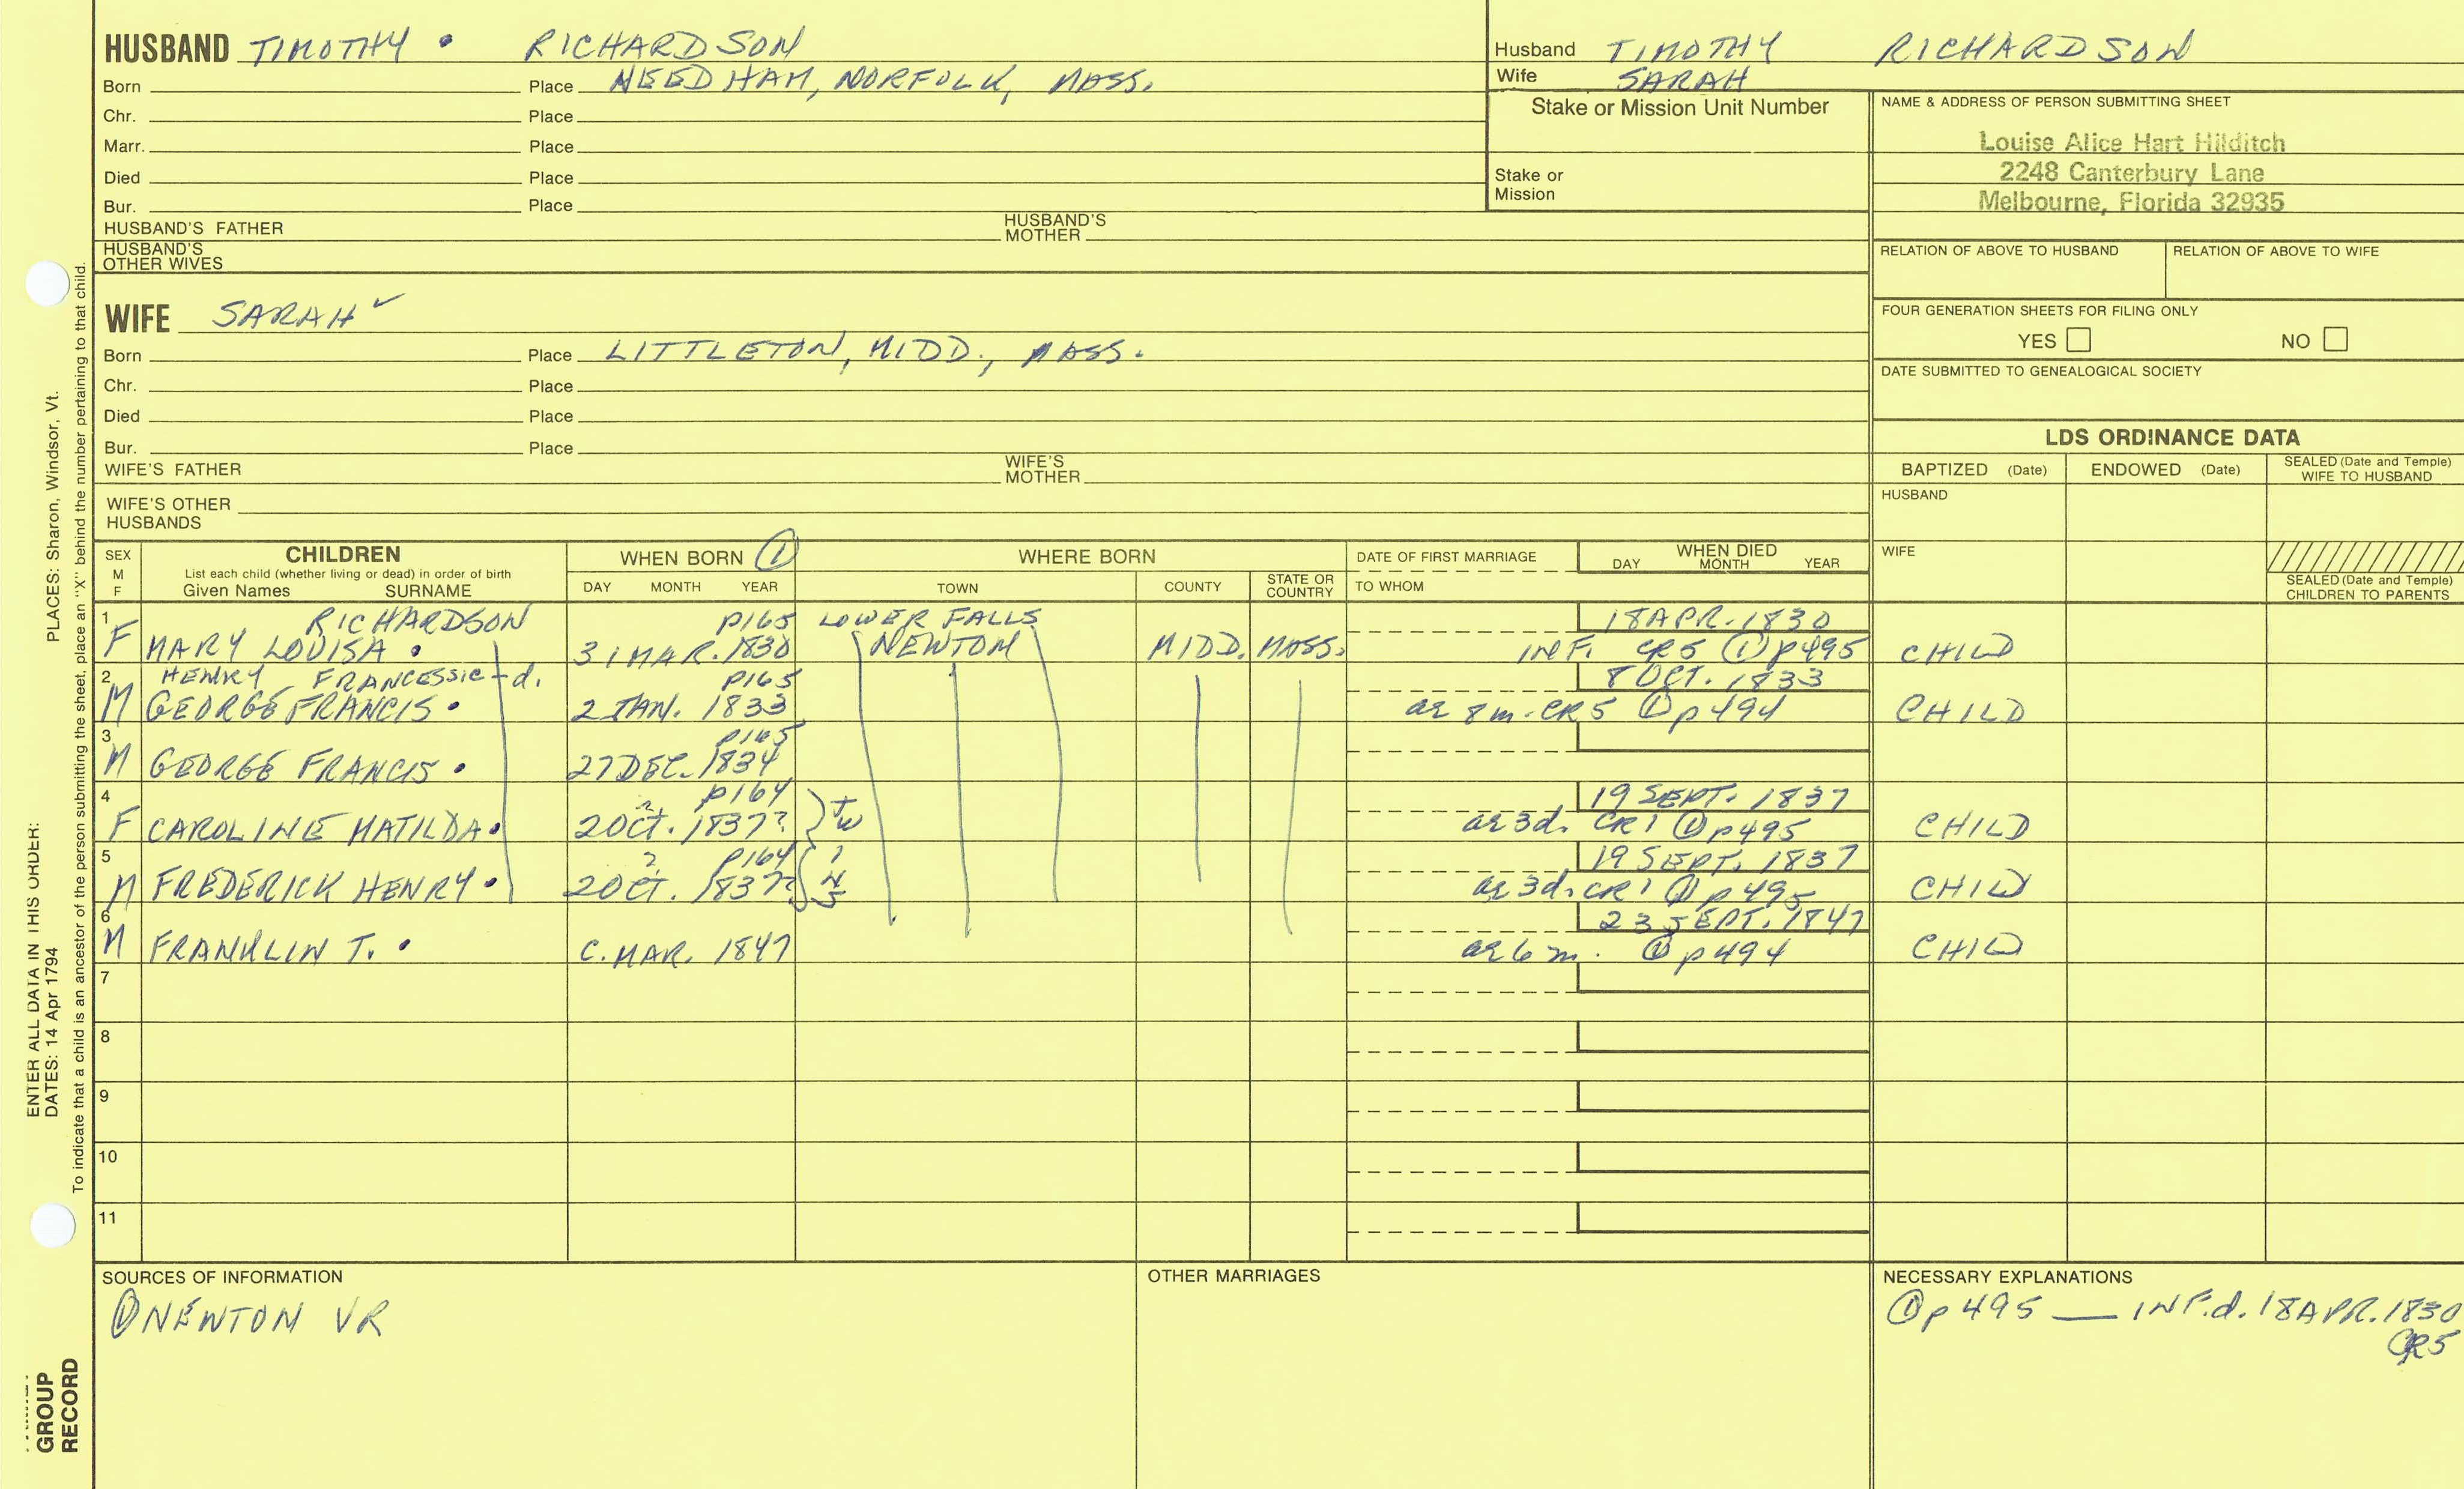 HUSBAND TIMOTHY • RICHARDSON
Born Place NEEDHAM, NORFOLK, MASS.
Chr. Place
Marr. Place
Died Place
Bur. Place
HUSBAND'S FATHER HUSBAND'S MOTHER
HUSBAND'S OTHER WIVES
Husband TIMOTHY RICHARDSON
Wife SARAH
Stake or Mission Unit Number
Stake or Mission
NAME & ADDRESS OF PERSON SUBMITTING SHEET
Louise Alice Hart Hilditch
2248 Canterbury Lane
Melbourne, Florida 32935
RELATION OF ABOVE TO HUSBAND RELATION OF ABOVE TO WIFE
FOUR GENERATION SHEETS FOR FILING ONLY
YES NO
DATE SUBMITTED TO GENEALOGICAL SOCIETY
WIFE SARAH ✓
Born Place LITTLETON, MIDD., MASS.
Chr. Place
Died Place
Bur. Place
WIFE'S FATHER WIFE'S MOTHER
WIFE'S OTHER HUSBANDS
LDS ORDINANCE DATA
BAPTIZED (Date) ENDOWED (Date) SEALED (Date and Temple) WIFE TO HUSBAND
HUSBAND
WIFE
SEALED (Date and Temple) CHILDREN TO PARENTS
SEX M F CHILDREN WHEN BORN ① WHERE BORN DATE OF FIRST MARRIAGE WHEN DIED
List each child (whether living or dead) in order of birth
Given Names SURNAME DAY MONTH YEAR TOWN COUNTY STATE OR COUNTRY TO WHOM DAY MONTH YEAR
1 RICHARDSON p165 LOWER FALLS 18 APR. 1830
F MARY LOUISA • 31 MAR. 1830 NEWTON MIDD. MASS. INF. CR5 ① p495 CHILD
2 HENRY FRANCES sic - d. p165 8 OCT. 1833
M GEORGE FRANCIS • 2 JAN. 1833 ae 8 m. CR5 ① p494 CHILD
3 p165
M GEORGE FRANCIS • 27 DEC. 1834
4 ? p164 19 SEPT. 1837
F CAROLINE MATILDA • 2 OCT. 1837? } tw ae 3d. CR1 ① p495 CHILD
5 ? p164 19 SEPT. 1837
M FREDERICK HENRY • 2 OCT. 1837? } ins ae 3d. CR1 ① p495 CHILD
6 23 SEPT. 1847
M FRANKLIN T. • C. MAR. 1847 ae 6 m. ① p494 CHILD
7
8
9
10
11
SOURCES OF INFORMATION
① NEWTON VR
OTHER MARRIAGES
NECESSARY EXPLANATIONS
① p 495 — INF. d. 18 APR. 1830
CR5
ENTER ALL DATA IN THIS ORDER:
DATES: 14 Apr 1794 PLACES: Sharon, Windsor, Vt.
To indicate that a child is an ancestor of the person submitting the sheet, place an "X" behind the number pertaining to that child.
GROUP
RECORD